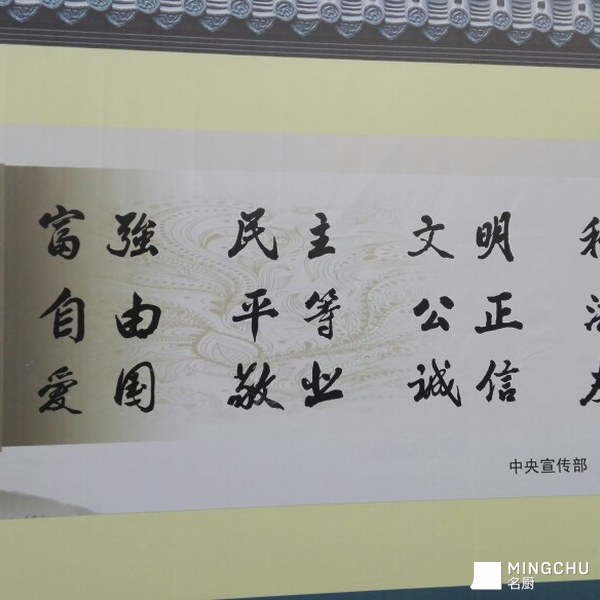 富強 民主 文明
自由 平等 公正
愛国 敬业 诚信
中央宣传部
MINGCHU
名厨